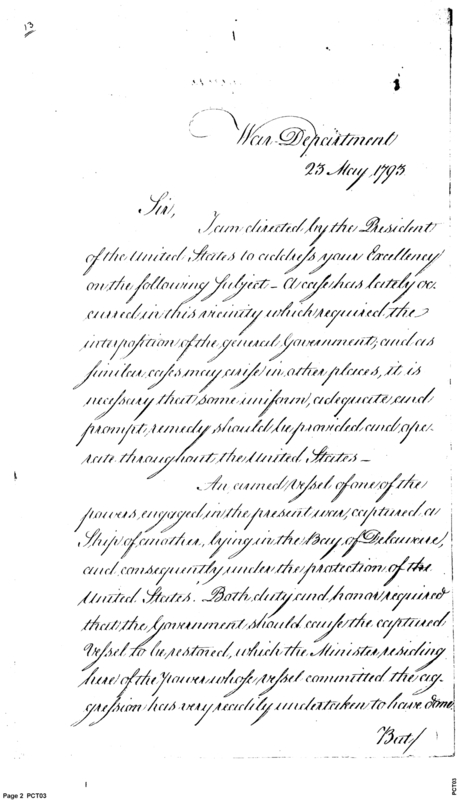 13
War Department
23 May 1793
Sir,
I am directed by the President
of the United States to address your Excellency
on the following subject – A case has lately oc-
curred in this vicinity which required the
interposition of the general Government, and as
similar cases may arise in other places, it is
necessary that some uniform, adequate and
prompt, remedy should be provided and ope-
rate throughout the United States –
An armed vessel of one of the
powers, engaged in the present war, captured a
Ship of another, lying in the Bay of Delaware,
and consequently under the protection of the
United States. Both duty and honor required
that the Government should cause the captured
Vessel to be restored, which the Minister residing
here of the Power whose vessel committed the ag-
gression has very readily undertaken to have done
But/
Page 2 PCT03
PCT03